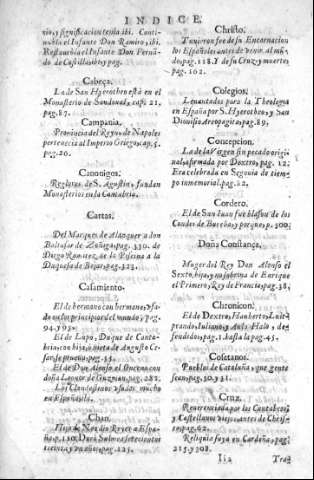 INDICE.
rio, y significacion tenia. ibi. Conti-
nuble el Infante Don Ramiro, ibi.
Restauròla el Infante Don Fernã-
do de Castilla ibi y pag.
Cabeça.
La de San Hyerotheo està en el
Monasterio de Sandoual, cap. 21.
pag. 87.
Campania.
Prouincia del Reyno de Napoles
pertenecia al Imperio Griego, cap. 5.
pag. 20.
Canonigos.
Reglares de S. Agustin, fundan
Monasterios en la Cantabria.
Cartas.
Del Marques de Alcañizes a don
Baltasar de Zuñiga, pag. 330. de
Diego Ramirez, de la Piscina a la
Duquesa de Bejar, pag. 323.
Casamiento.
El de hermano con hermana, vsa-
do en los principios del mundo, pag.
94. y 95.
El de Lupo, Duque de Canta-
bria, con hija, ò nieta de Augusto Ce-
sar
El de Don Alonso el Onceno con
doña Leonor de Guzman, pag. 282.
Los Clandestinos vsados mucho
en España ibi.
Chan.
Hijo de Noe dio Reyes a Espa-
ña, p. 150. Durò Salve siete cientos
pag. 125.
Christo.
Tuuieron fee de su Encarnacion
los Españoles antes de venir al mũ-
do, pag. 118. Y de su Cruz, y muerte
pag. 102.
Colegios.
Leuantados para la Theologia
en España por S. Hyerotheo, y San
Dionisio Areopagita, pag. 89.
Concepcion.
La de la Virgen sin pecado origi-
nal, afirmada por Dextro, pag. 12.
Era celebrada en Segouia de tiem-
po inmemorial, pag. 12.
Cordero.
El de San Iuan fue blason de los
Condes de Bureba, y porque, p. 300.
Doña Constança.
Muger del Rey Don Alonso el
Sexto, hija, y no sobrina de Enrique
el Primero, Rey de Francia, pag. 38.
Chronicon.
El de Dextro, Hauberto, Luit-
prando, Iuliano, y Aulo Halo, de-
fendidos, pag. 1. hasta la pag. 45.
Cosetanos.
Pueblos de Cataluña, que gente
sean, p. 50. y 51.
Cruz.
Reuerenciada por los Cantabros,
y Castellanos viejos, antes de Chris-
to, pag. 62.
Reliquia suya en Cardeña, pag.
215. y 308.
Iiz Traə